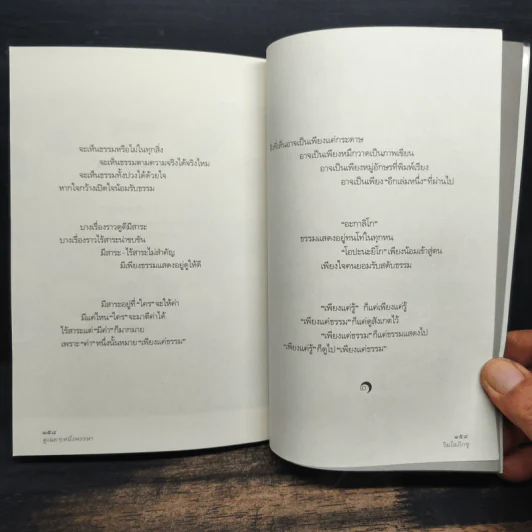 จะเห็นธรรมหรือไม่ในทุกสิ่ง
จะเห็นธรรมตามความจริงได้จริงไหม
จะเห็นธรรมทั้งปวงได้ด้วยใจ
หากใจกว้างเปิดใจน้อมรับธรรม
บางเรื่องราวดูดีมีสาระ
บางเรื่องราวไร้สาระน่าขบขัน
มีสาระ-ไร้สาระไม่สำคัญ
มีเพียงธรรมแสดงอยู่ดูให้ดี
มีสาระอยู่ที่ “ใคร” จะให้ค่า
มีแค่ไหน “ใคร” จะมาตีค่าได้
ไร้สาระแต่ “มีค่า” ก็มากมาย
เพราะ “ค่า” หนึ่งนั้นหมาย “เพียงแค่ธรรม”
๑๕๘
ดูเฉยๆ หนึ่งพรรษา
อาจเป็นเพียงแค่กระดาษ
อาจเป็นเพียงหมึกวาดเป็นภาพเขียน
อาจเป็นเพียงหมู่อักษรที่พิมพ์เรียง
อาจเป็นเพียง “อีกเล่มหนึ่ง” ที่ผ่านไป
“อะกาลิโก”
ธรรมแสดงอยู่ทนโท่ในทุกหน
“โอปะนะยิโก” เพียงน้อมเข้าสู่ตน
เพียงใจคนยอมรับสดับธรรม
“เพียงแค่รู้” ก็แค่เพียงแค่รู้
“เพียงแค่ธรรม” ก็แค่ดูสังเกตไว้
“เพียงแค่ธรรม” ก็แค่ธรรมแสดงไป
“เพียงแค่รู้” ก็ดูไป “เพียงแค่ธรรม”
๑๕๙
วิมโลภิกขุ